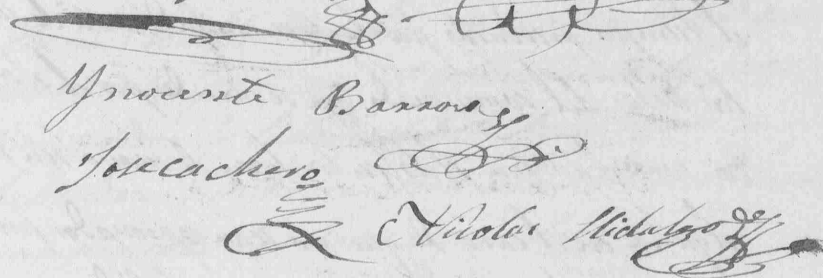 Ynocente Barroso
Jose cachero
Nicolas Hidalgo